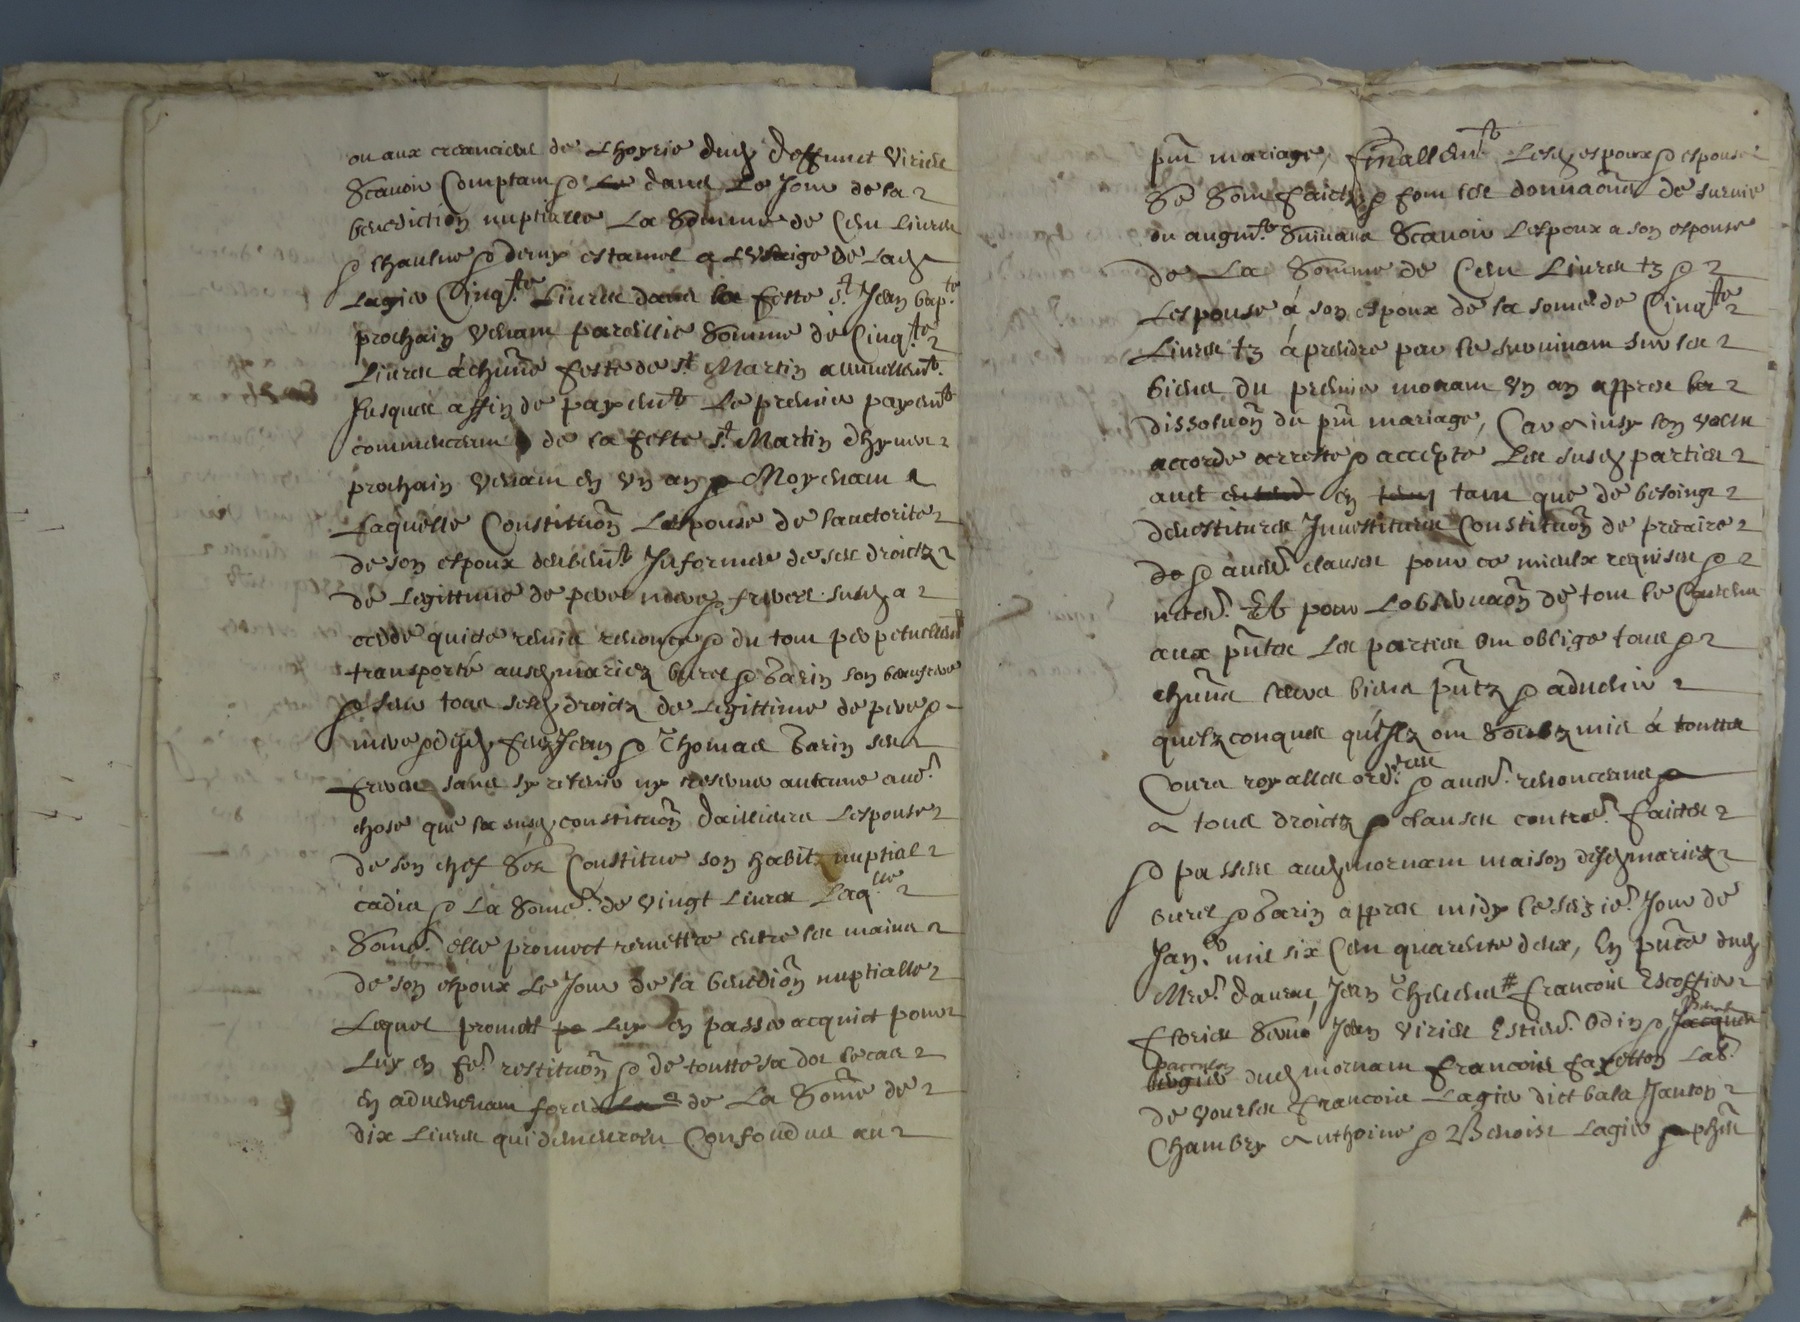 ou aux creanciers de Lhoyrie dud deffunct Viriem
Scavoir Comptant & dans Le Jour de la
benediction nuptialle La Somme de Cent Livres
& chausse & demy estamet a Lusaige de lad
Lagier Cinq.te Livres dans la feste s.t Jean bap.te
prochain venant pareillie Somme de Cinq.te
Livres à chune feste de s.t Martin annuellem.t
Jusques affin de payem.t Le premier payem.t
commencerant de la feste s.t Martin dhyver
prochain venant en un an & Moyenant
Laquelle Constituon Lespouse de lauctorite
de son espoux deubem.t Informee de ses droictz
de Legittime de pere mere & freres susd a
cedde quicte remis renonce & du tout perpetuellem.t
transporté ausd mariez burel & barin son beaufrere
& sere tous sesd droictz de Legittime de pere &
mere & desd feuz Jean & Thomas barin ses
freres sans sy retenir ny reserver aulcune aut.
chose que la susd constituon dailleurs Lespouse
de son chef Sest Constitue son habit nuptial
cadis & La Some. de vingt Livres Laq.lle
Some. elle promect remettre entre les mains
de son espoux Le Jour de la benedion nuptialle
Lequel promect Luy en passer acquict pour
Luy en fe. restituon & de toutte sa dot le cas
en advenant fors de La Some de
dix Livres qui demeureront Confondus au
pnt mariage, finallem.t Lesd espoux & espouse
Se Sont faictz & font les donnaons de survie
ou augm.t Suivans Scavoir Lespoux a son espouse
de La Somme de Cent Livres tz &
Lespouse à son espoux de la some. de Cinq.te
Livres tz à prendre par le survivant sur les
biens du premier mourant un an appres la
dissoluon du pnt mariage, Car ainsy lon voulu
accorde arreste & accepte Les susd parties
avec en tant que de besoing
devestitures Investitures Constituon de precaire
de & aucs. clauses pour ce mieulx requises &
neces. Et pour Lobservaon de tout le Contenu
aux pntes Les parties ont oblige tous &
chuns leurs biens pntz & advenir
quelzconques quilz ont Soubzmis à touttes
Cours royalles ord.res & aucs. renonceans
a tous droictz & clauses contre. faictes
& passees aud mornant maison desd mariez
burel & barin appres midy le seizie. Jour de
Jan.er mil six Cent quarente deux, En pnce dud
Mre. Davau, Jean Thevenet # francois Escoffier
Jean Viriem Estien. Odin &
dud mornant francois fayetton Lab.
de vourles francois Lagier dict bala Janton
Chambry Anthoine & Benoist Lagier